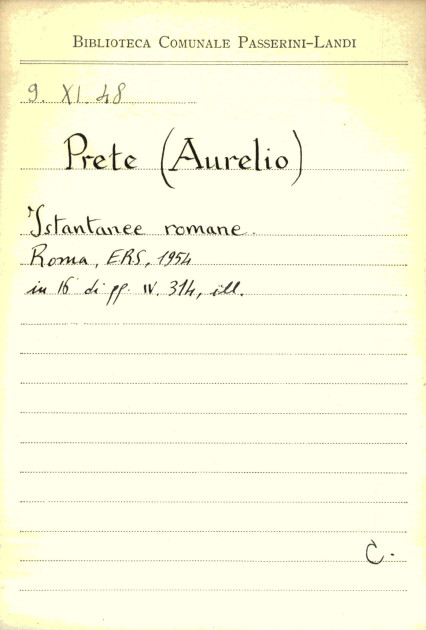 BIBLIOTECA COMUNALE PASSERINI-LANDI
9. XI. 48
Prete (Aurelio)
Istantanee romane.
Roma, ERS, 1954
in 16° di pp. IV. 314, ill.
C.